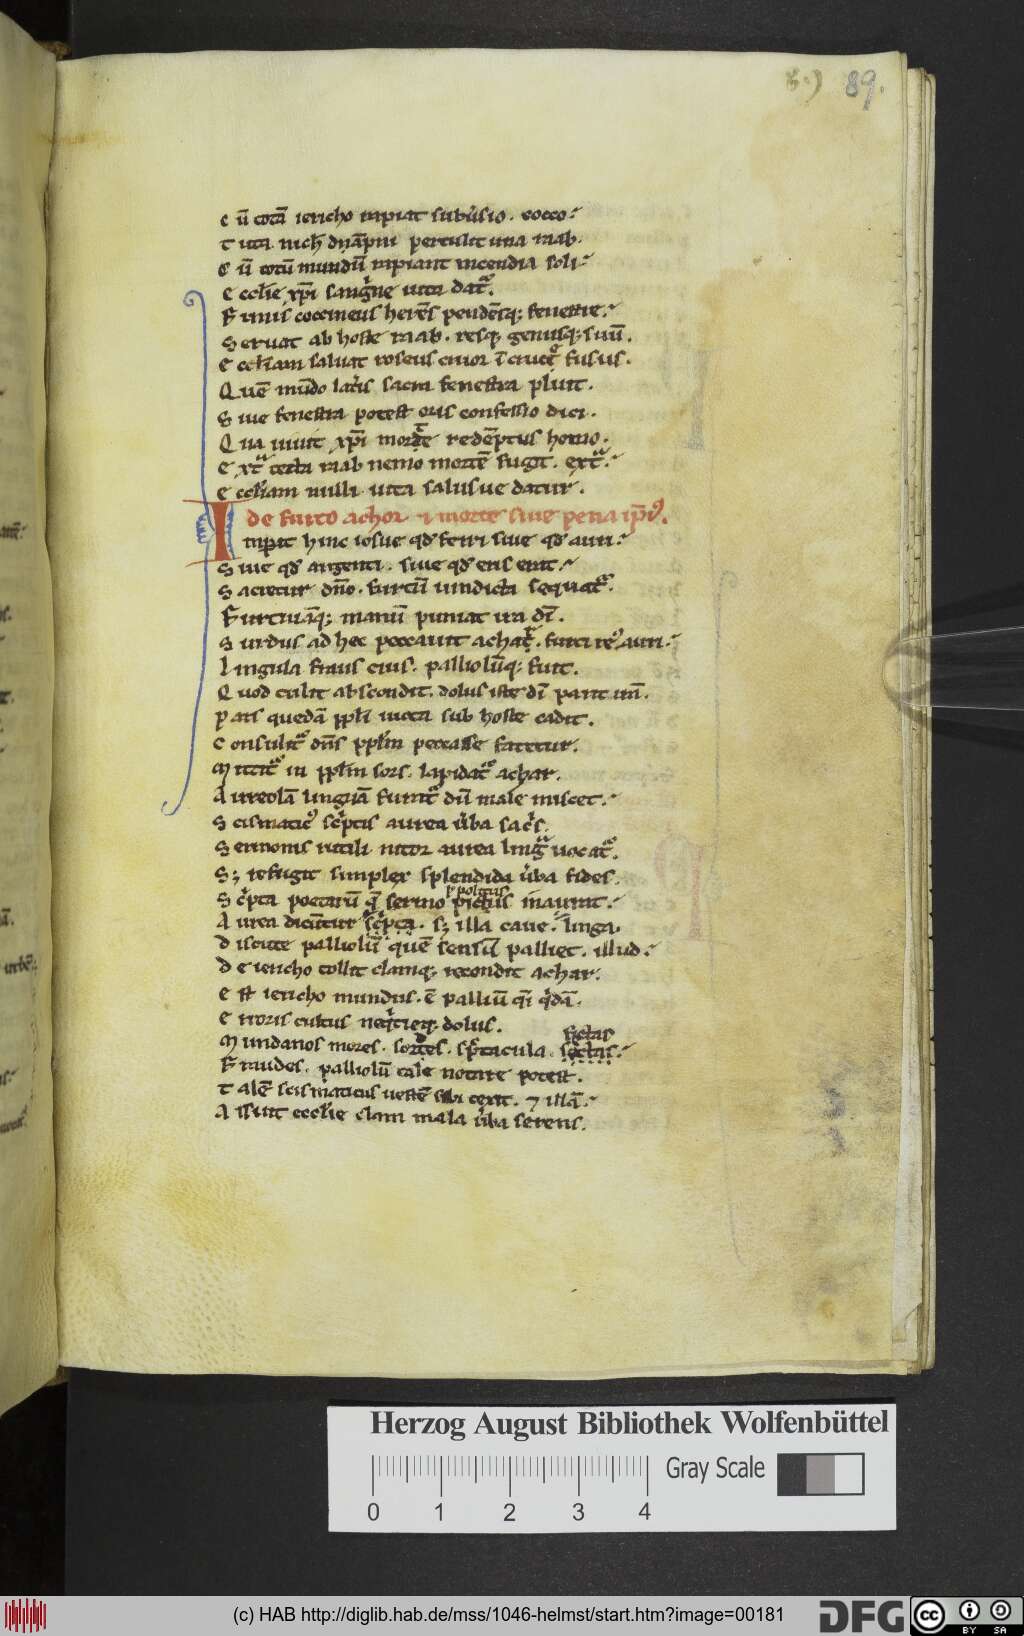 89.
C ū totā iericho rapiat subúsio. cocco:
T uta nich̄ dāpni pertulit una raab.
C ū totū mundū rapiant incendia soli:
E ccl̄ie xp̄i sangⁱne uita datᵘʳ.
F unis coccineus herēs pendēsq; fenestre:
S eruat ab hoste raab. resq; genusq; suū.
E ccl̄iam saluat roseus cruor ī cruce fusus.
Q uē mūdo latīs sacra fenestra pluit.
S iue fenestra potest oris confessio dici.
Q ua uiuit xp̄i morte redēptus homo.
E xᵃ tecta raab nemo mortē fugit. exᵃ:
E ccl̄iam nulli uita salusue datur.
de furto achor ⁊ morte siue pena ip̄iꝰ.
I mperat hinc iosue qd̄ ferri siue qd̄ auri:
S iue qd̄ argenti. siue qd̄ eris erit:
S acretur dn̄o. furtū uindicta sequatᵘʳ.
F urtiuāq; manū puniat ira dī.
S urdus ad hec peccauit achar. furti reꝰ auri:
L ingula fraus eius. palliolūq; fuit.
Q uod tulit abscondit. dolus iste dī parit irā.
P ars quedā ppl̄i uicta sub hoste cadit.
C onsulitᵘʳ dn̄s ppl̄m peccasse fatetur.
M ittitᵘʳ in ppl̄m sors. lapidatᵘʳ achar.
A ureolā linguā furatᵘʳ dū male miscet:
S cismaticꝰ scⁱptis aurea úba sacⁱs.
S ermonis rutili nitor aurea linguᵃ uocatᵘʳ.
S; refugit simplex splendida úba fides.
S cⁱpta poetarū q̄ sermo pictus inaurat:
politus
A urea dicūtur scⁱpta. s; illa caue. lingᵃ.
D iscute palliolū quē sensū palliet. illud:
D e iericho tollit clamq; recondit achar.
E st iericho mundus. ē palliū q̄i q̄dā.
E rroris cultus neqⁱtieq; dolus.
M undanos mores. sordes. spētacula. sectas:
fictas
F raudes. palliolū tale notare potest.
T alē scismaticus uestē sibi texit. ⁊ illā:
A ssuit eccl̄ie clam mala úba serens.
Herzog August Bibliothek Wolfenbüttel
0 1 2 3 4
Gray Scale
(c) HAB http://diglib.hab.de/mss/1046-helmst/start.htm?image=00181
DFG
cc BY SA